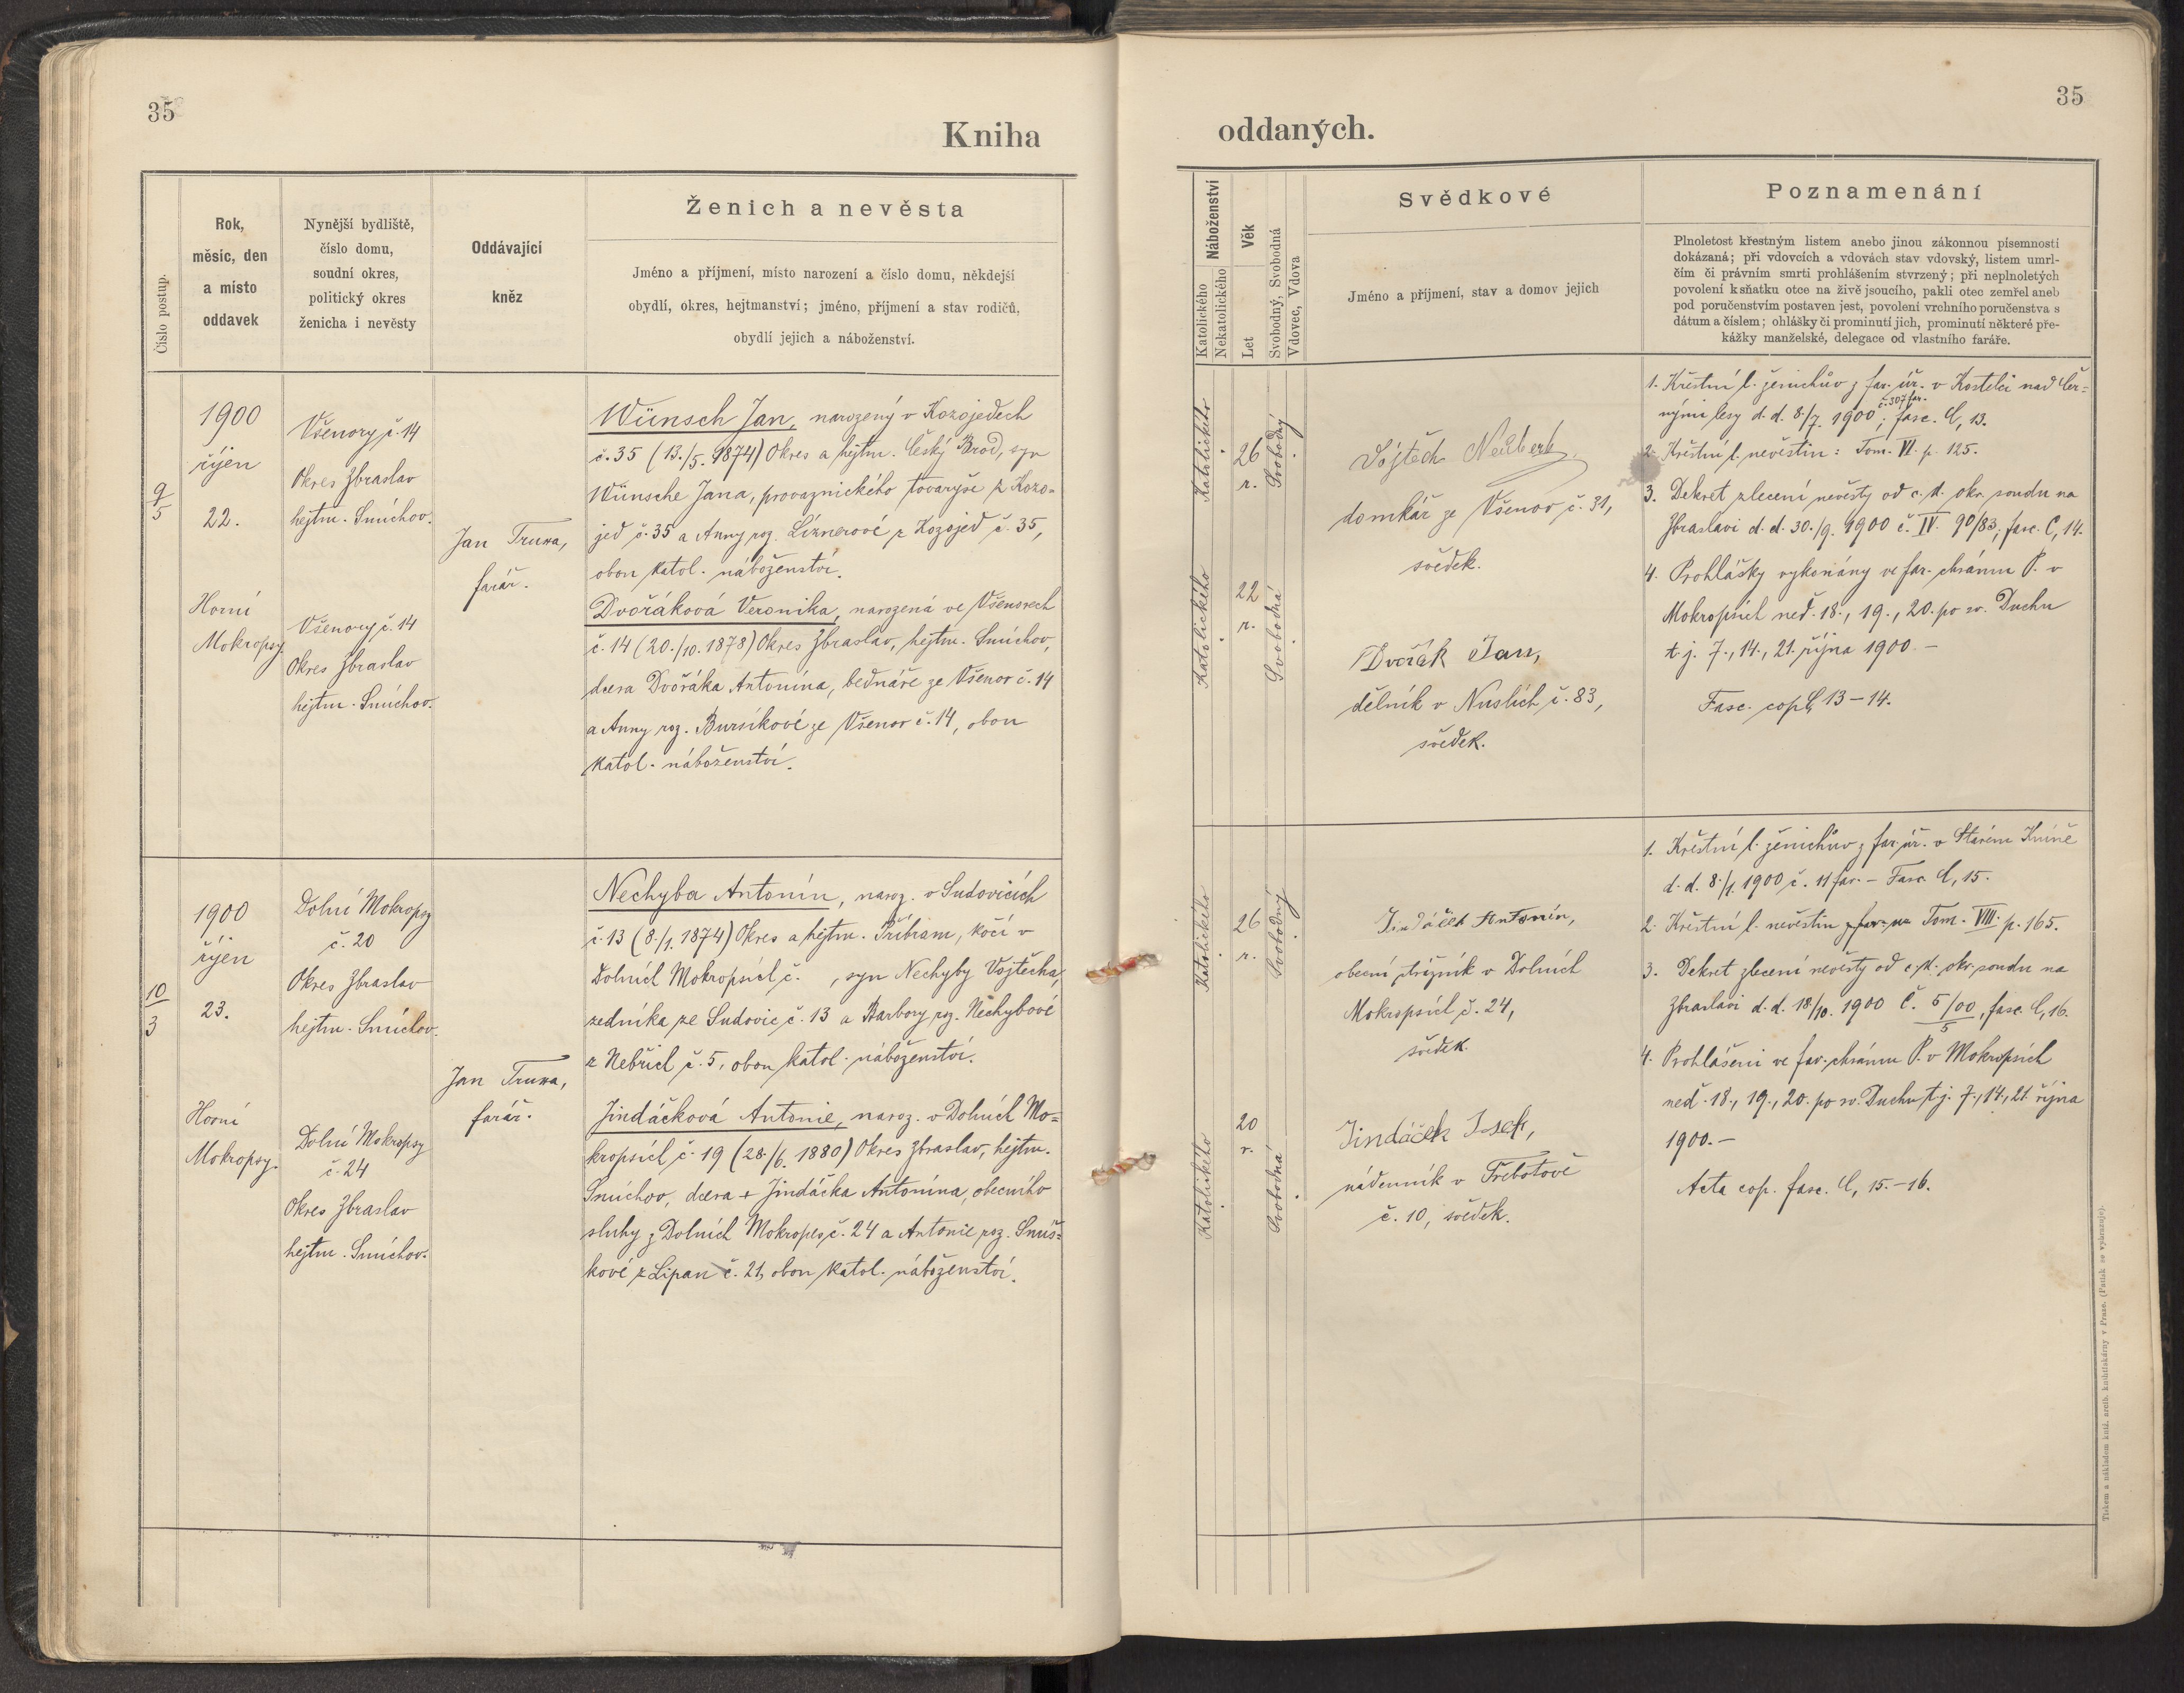 35
Kniha
Číslo postup.
Rok,
měsíc, den
a místo
oddavek
Nynější bydliště,
číslo domu,
soudní okres,
politický okres
ženicha i nevěsty
Oddávající
kněz
Ženich a nevěsta
Jméno a příjmení, místo narození a číslo domu, někdejší
obydlí, okres, hejtmanství; jméno, příjmení a stav rodičů,
obydlí jejich a náboženství.
9/5
1900
říjen
22.
Horní
Mokropsy.
Všenory č. 14
Okres Zbraslav
hejtm. Smíchov.
Všenory č. 14
Okres Zbraslav
hejtm. Smíchov.
Jan Truxa,
farář.
Wünsch Jan, narozený v Kozojedech
č. 35 (13./5. 1874) Okres a hejtm. Český Brod, syn
Wünsche Jana, provaznického tovaryše z Kozo-
jed č. 35 a Anny roz. Líznerové z Kozojed č. 35,
obou katol. náboženství.
Dvořáková Veronika, narozená ve Všenorech
č. 14 (20./10. 1878) Okres Zbraslav, hejtm. Smíchov,
dcera Dvořáka Antonína, bednáře ze Všenor č. 14
a Anny roz. Bursíkové ze Všenor č. 14, obou
katol. náboženství.
10/3
1900
říjen
23.
Horní
Mokropsy.
Dolní Mokropsy
č. 20
Okres Zbraslav
hejtm. Smíchov.
Dolní Mokropsy
č. 24
Okres Zbraslav
hejtm. Smíchov.
Jan Truxa,
farář.
Nechyba Antonín, naroz. v Sudovicích
č. 13 (8./1. 1874) Okres a hejtm. Příbram, kočí v
Dolních Mokropsích č. , syn Nechyby Vojtěcha,
zedníka ze Sudovic č. 13 a Barbory roz. Nechybové
z Nebřich č. 5, obou katol. náboženství.
Jindáčková Antonie, naroz. v Dolních Mo-
kropsích č. 19 (28./6. 1880) Okres Zbraslav, hejtm.
Smíchov, dcera + Jindáčka Antonína, obecního
sluhy z Dolních Mokropes, č. 24 a Antonie roz.
kové z Lipan č. 21, obou katol. náboženství.
35
oddaných.
Náboženství
Katolického
Nekatolického
Věk
Let
Svobodný, Svobodná
Vdovec, Vdova
Svědkové
Jméno a příjmení, stav a domov jejich
Poznamenání
Plnoletost křestným listem anebo jinou zákonnou písemností
dokázaná; při vdovcích a vdovách stav vdovský, listem umrl-
čím či právním smrti prohlášením stvrzený; při neplnoletých
povolení k sňatku otce na živě jsoucího, pakli otec zemřel aneb
pod poručenstvím postaven jest, povolení vrchního poručenstva s
dátum a číslem; ohlášky či prominutí jich, prominutí některé pře-
kážky manželské, delegace od vlastního faráře.
Katolického
26
r.
Svobodný
Katolického
22
r.
Svobodná
Vojtěch Neubert,
domkář ze Všenor č. 31,
svědek.
Dvořák Jan,
dělník v Nuslích č. 83,
svědek.
1. Křestní l. ženichův z far. úř. v Kostelci nad Čer-
nými lesy d. d. 8./7. 1900 č. 307 far.; fasc. C, 13.
2. Křestní l. nevěstin: Tom. VI. p. 125.
3. Dekret zlecení nevěsty od c. k. okr. soudu na
Zbraslavi d. d. 30./9. 1900 č. IV. 90/83; fasc. C, 14.
4. Prohlášky vykonány ve far. chrámu P. v
Mokropsích neď. 18., 19., 20. po sv. Duchu
t. j. 7., 14., 21. října 1900. —
Fasc. cop. C, 13-14.
Katolického
26
r.
Svobodný
Katolického
20
r.
Svobodná
Jindáček Antonín,
obecní strážník v Dolních
Mokropsích č. 24,
svědek.
Jindáček Josef,
nádenník v Třebotově
č. 10, svědek.
1. Křestní l. ženichův z far. úř. v Starém Kníně
d. d. 8./1. 1900 č. 11 far. — Fasc. C, 15.
2. Křestní l. nevěstin Tom. VIII. p. 165.
3. Dekret zlecení nevěsty od c. k. okr. soudu na
Zbraslavi d. d. 18/10. 1900 Č. 5/00/5, fasc. C, 16.
4. Prohlášeni ve far. chrámu P. v Mokropsích
neď. 18., 19., 20. po sv. Duchu t. j. 7., 14., 21. října
1900. —
Acta cop. fasc. C, 15.-16.
Tiskem a nákladem kníž. arcib. knihtiskárny v Praze. (Patisk se vyhrazuje).